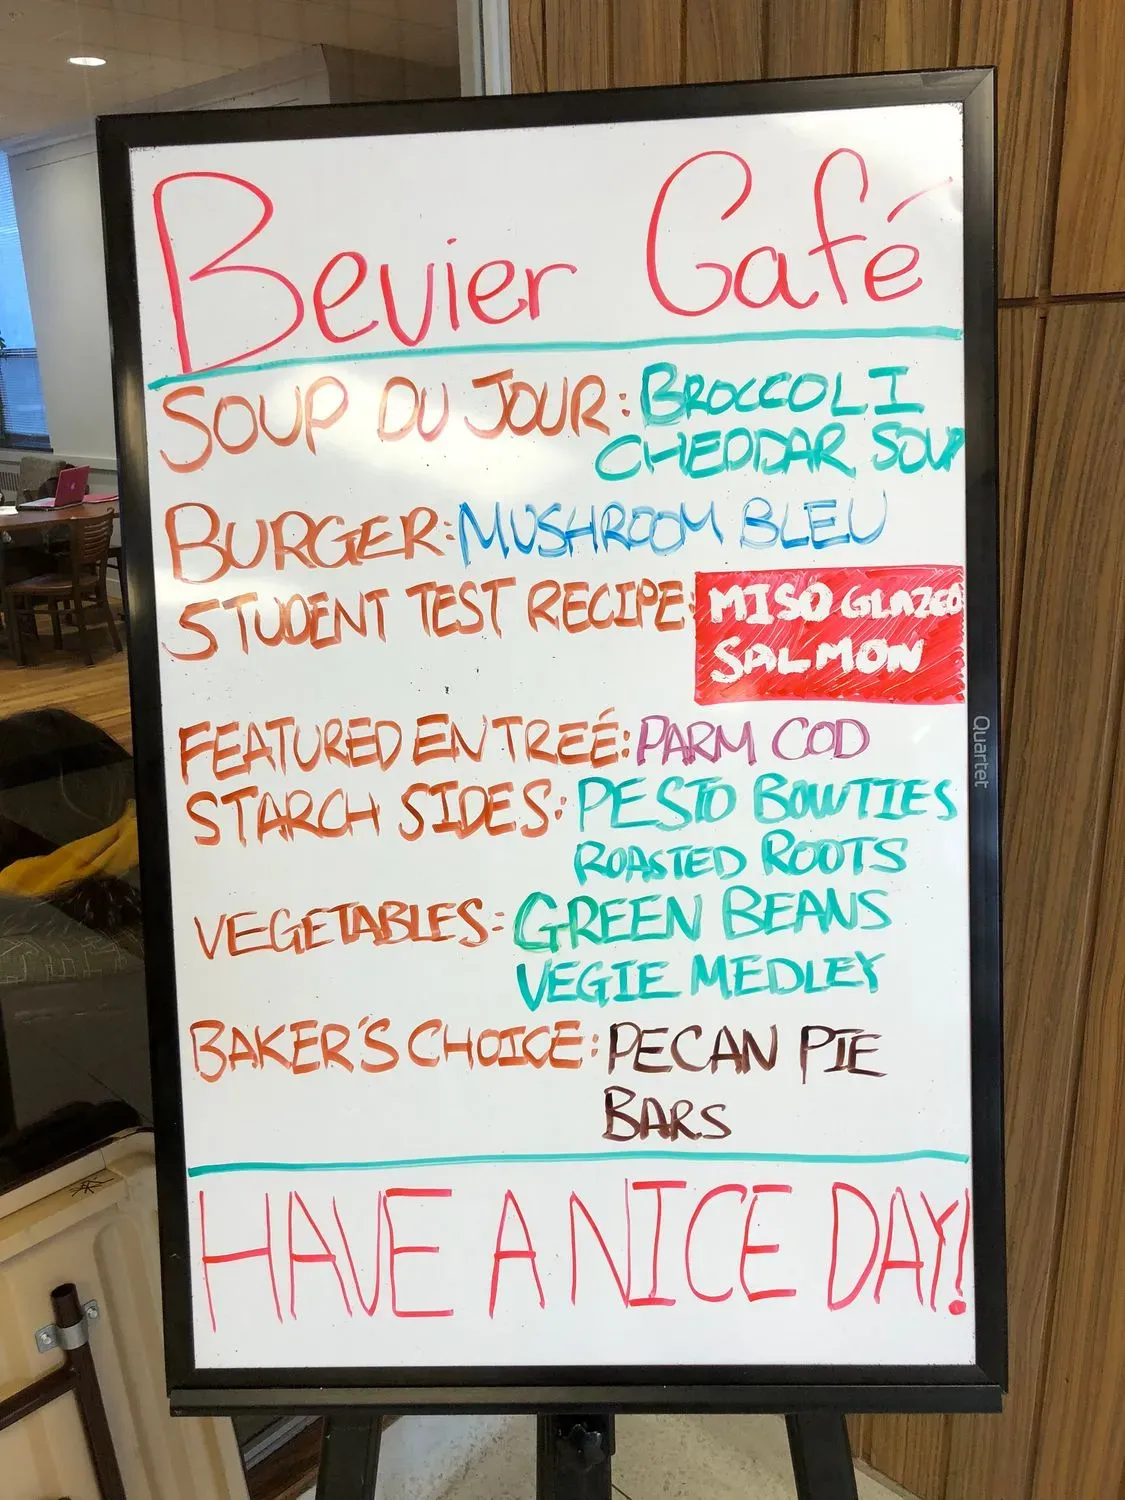 Bevier Café
SOUP DU JOUR: BROCCOLI
CHEDDAR SOUP
BURGER: MUSHROOM BLEU
STUDENT TEST RECIPE: MISO GLAZED
SALMON
FEATURED ENTREÉ: PARM COD
STARCH SIDES: PESTO BOWTIES
ROASTED ROOTS
VEGETABLES: GREEN BEANS
VEGIE MEDLEY
BAKER'S CHOICE: PECAN PIE
BARS
HAVE A NICE DAY!
Quartet